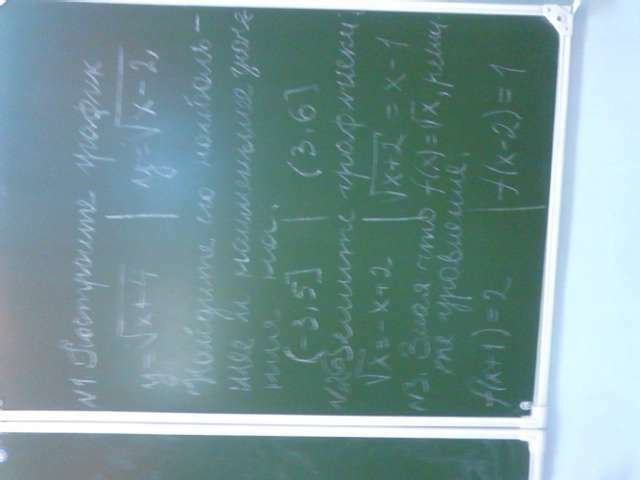 №1 Постройте график
y=√x+4 | y=√x-2,
Найдите его наиболь-
шее и наименьшее значе-
ния на:
(-3,5] | (3,6]
№2 Решите графически:
√x=-x+2 | √x+2 = x-1
№3. Зная что f(x)=√x, реши-
те уравнение.
f(x+1)=2 | f(x-2)=1